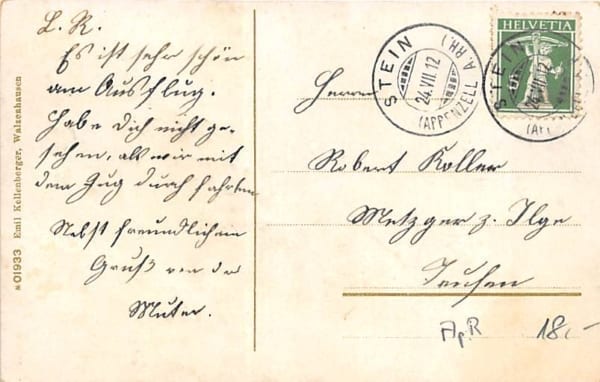 L. R.
Es ist sehr schön
am Ausflug.
Habe Dich nicht ge-
sehen, als wir mit
dem Zug durch fahrten
Nebst freundlichem
Gruß von der
Mutter.
№ 01933 Emil Kellenberger, Walzenhausen
HELVETIA
STEIN
24.VII.12
(APPENZELL A.RH.)
STEIN
24.VII.12
(AP
Herrn
Robert Koller
Metzger z. Ilge
Teufen
ApR 18.-